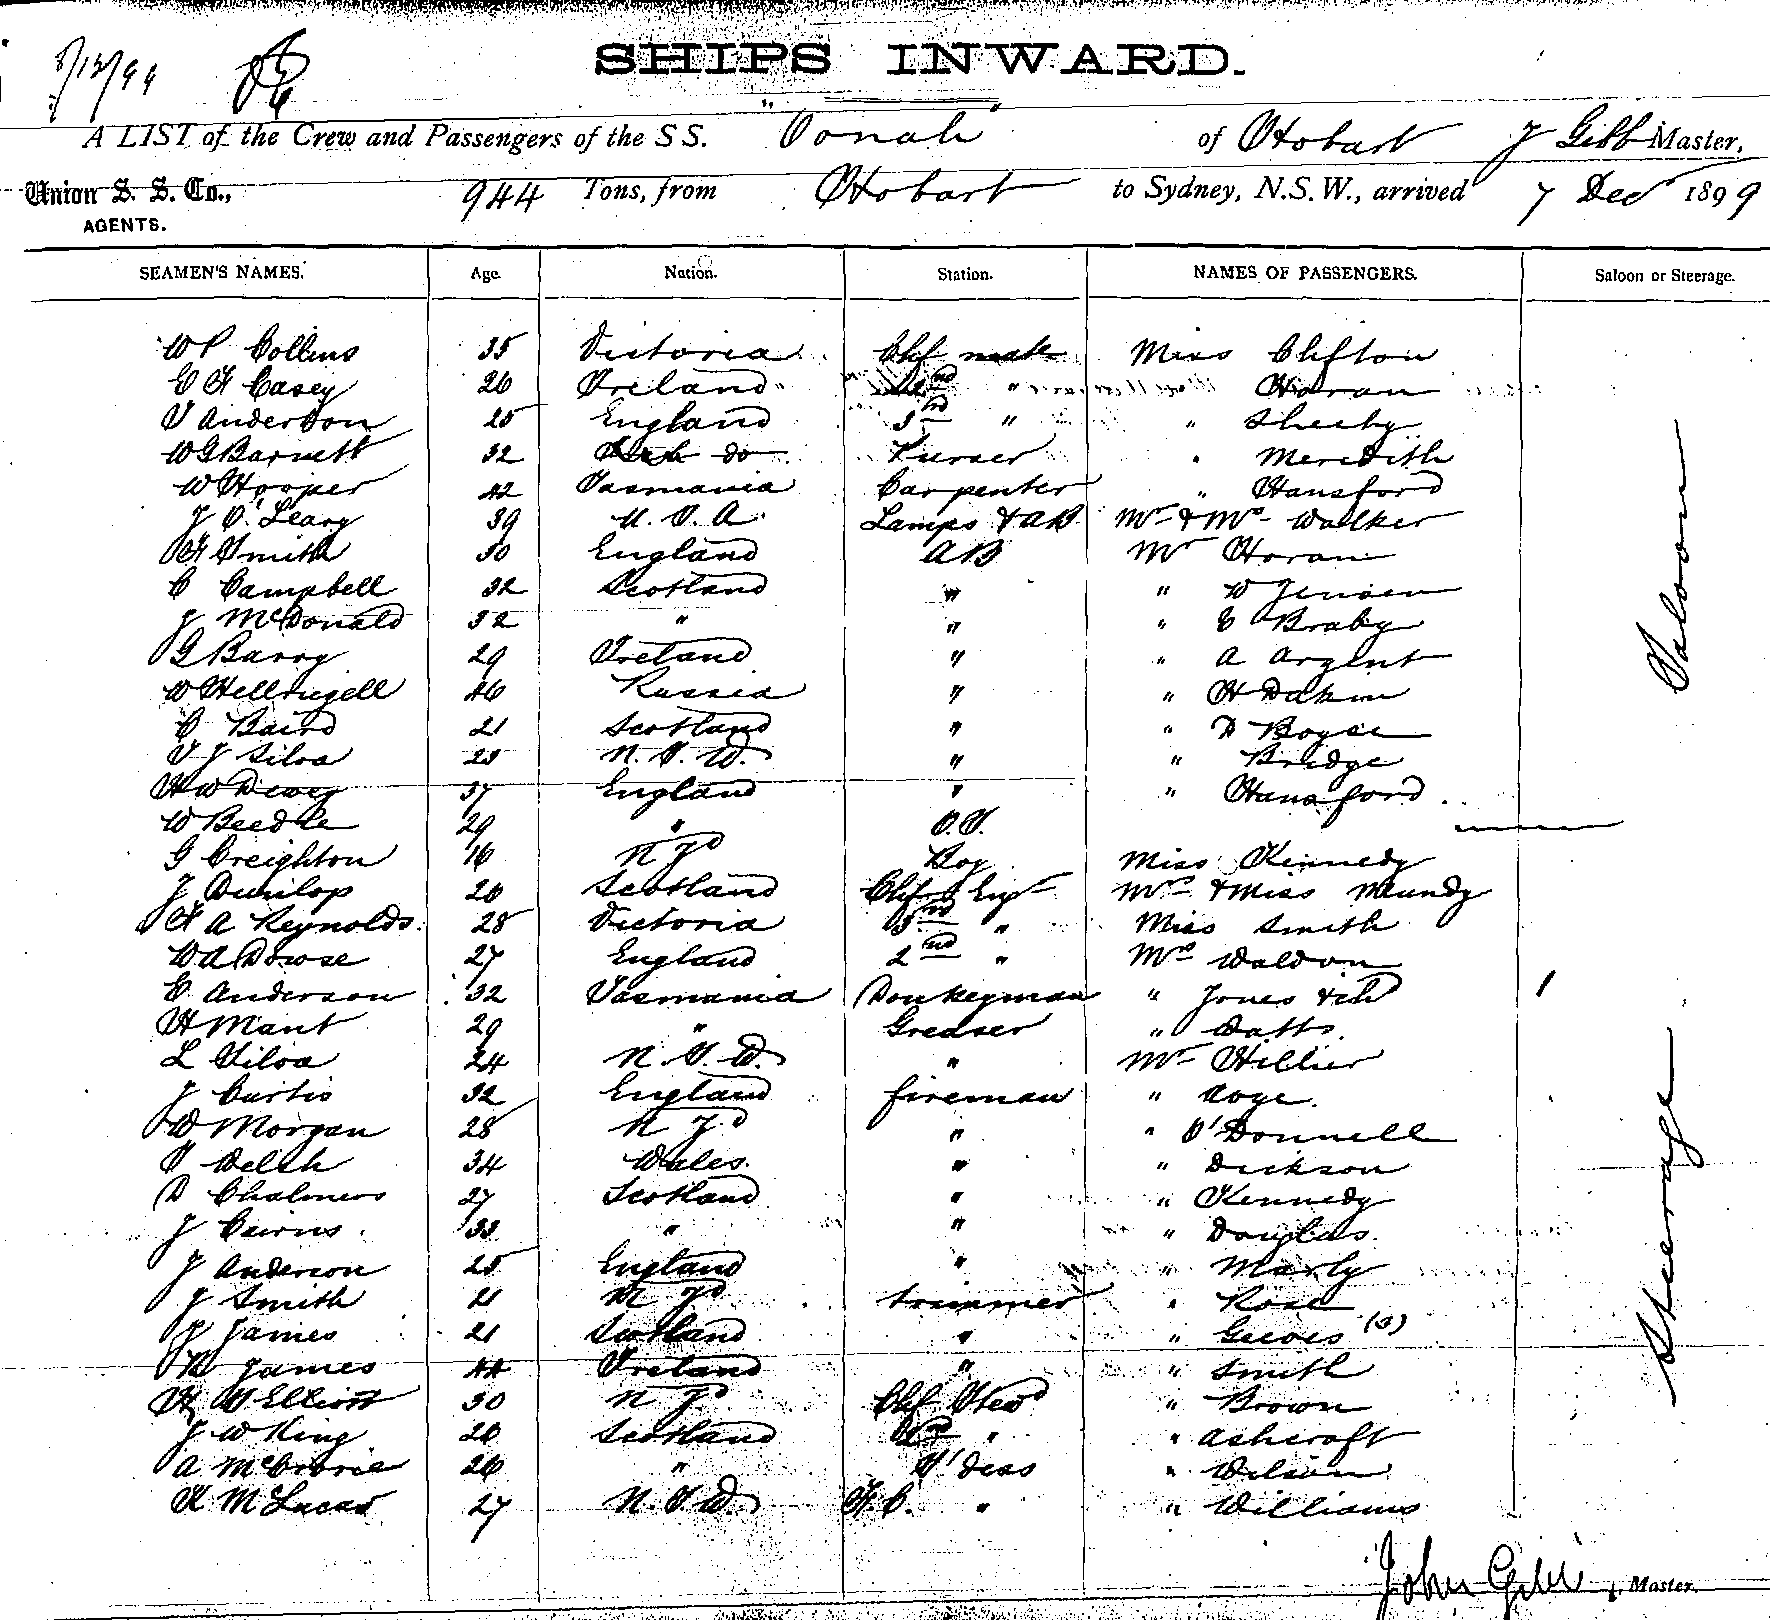 8/12/99
SHIPS INWARD.
A LIST of the Crew and Passengers of the SS. "Oonah" of Hobart J Gibb Master,
Union S. S. Co., 944 Tons, from Hobart to Sydney, N.S.W., arrived 7 Dec 1899
AGENTS.
SEAMEN'S NAMES. Age. Nation. Station. NAMES OF PASSENGERS. Saloon or Steerage.
W P Collins 35 Victoria Chf mate Miss Clifton
E F Casey 26 Ireland 2nd " Horan
T Anderson 25 England 3rd " " Sheehy
W G Barnett 32 do Purser " Meredith
W Hooper 42 Tasmania Carpenter " Hansford
J O'Leary 39 U. S. A Lamps & AB Mr & Mrs Walker
F Smith 30 England AB Mr Horan
C Campbell 32 Scotland " " W Jensen
J McDonald 32 " " " E Braby
G Barry 29 Ireland " " A Argent
W Hellrigell 46 Russia " " H Dakin
C Baird 21 Scotland " " D Boyce
T J Silva 25 N. S. W. " " Bridge
H W Dewey 37 England " " Hansford
W Beedle 29 " O.S.
Saloon
G Creighton 16 N Zd Boy Miss Kennedy
J Dunlop 26 Scotland Chf Engr Mrs & Miss Mundy
F A Reynolds 28 Victoria 3rd " Miss Smith
W A Dowse 27 England 2nd " Mrs Waldon
C Anderson 32 Tasmania Donkeyman " Jones & chd 1
H Mant 29 " Greaser " Watts
L Silva 24 N. S. W. " Mr Hillier
J Curtis 32 England fireman " Voge
W Morgan 28 N Zd " " O'Donnell
T Welsh 34 Wales " " Dickson
D Chalmers 27 Scotland " " Kennedy
J Cairns 33 " " " Douglas
J Anderson 25 England " " Marly
J Smith 21 N Zd trimmer " Rose
J James 21 Scotland " " Geeves (3)
James 44 Ireland " " Smith
H Elliott 30 N Zd Chf Stewd " Brown
J W King 26 Scotland 2nd " " Ashcroft
A McCrorie 26 " S'dess " Wilson
K M Lucas 27 N. S. W. F.C. " " Williams
Steerage
John Gibb, Master.